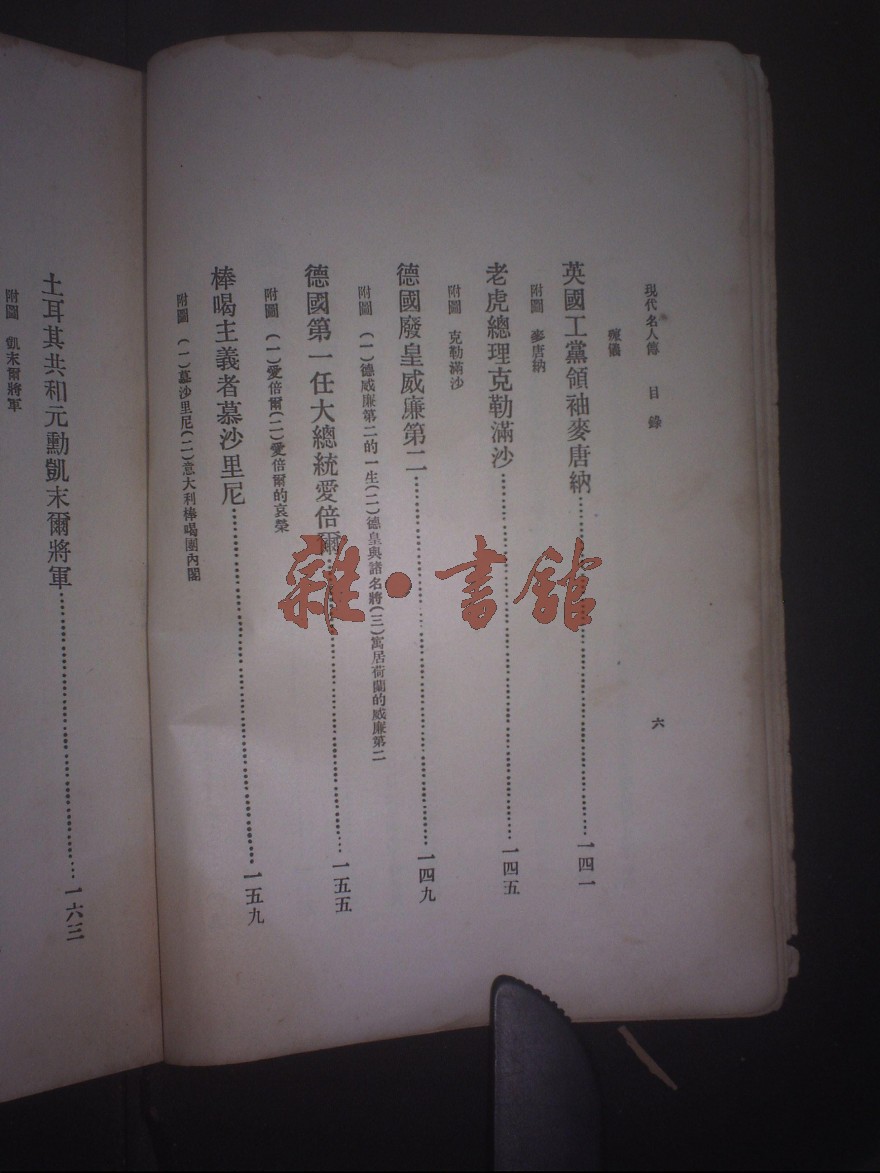 現代名人傳 目錄 六
殯儀
英國工黨領袖麥唐納……一四一
附圖 麥唐納
老虎總理克勒滿沙……一四五
附圖 克勒滿沙
德國廢皇威廉第二……一四九
附圖 (一)德威廉第二的一生(二)德皇與諸名將(三)寓居荷蘭的威廉第二
德國第一任大總統愛倍爾……一五五
附圖 (一)愛倍爾(二)愛倍爾的哀榮
棒喝主義者慕沙里尼……一五九
附圖 (一)慕沙里尼(二)意大利棒喝團內閣
土耳其共和元勳凱末爾將軍……一六三
附圖 凱末爾將軍
雜·書館